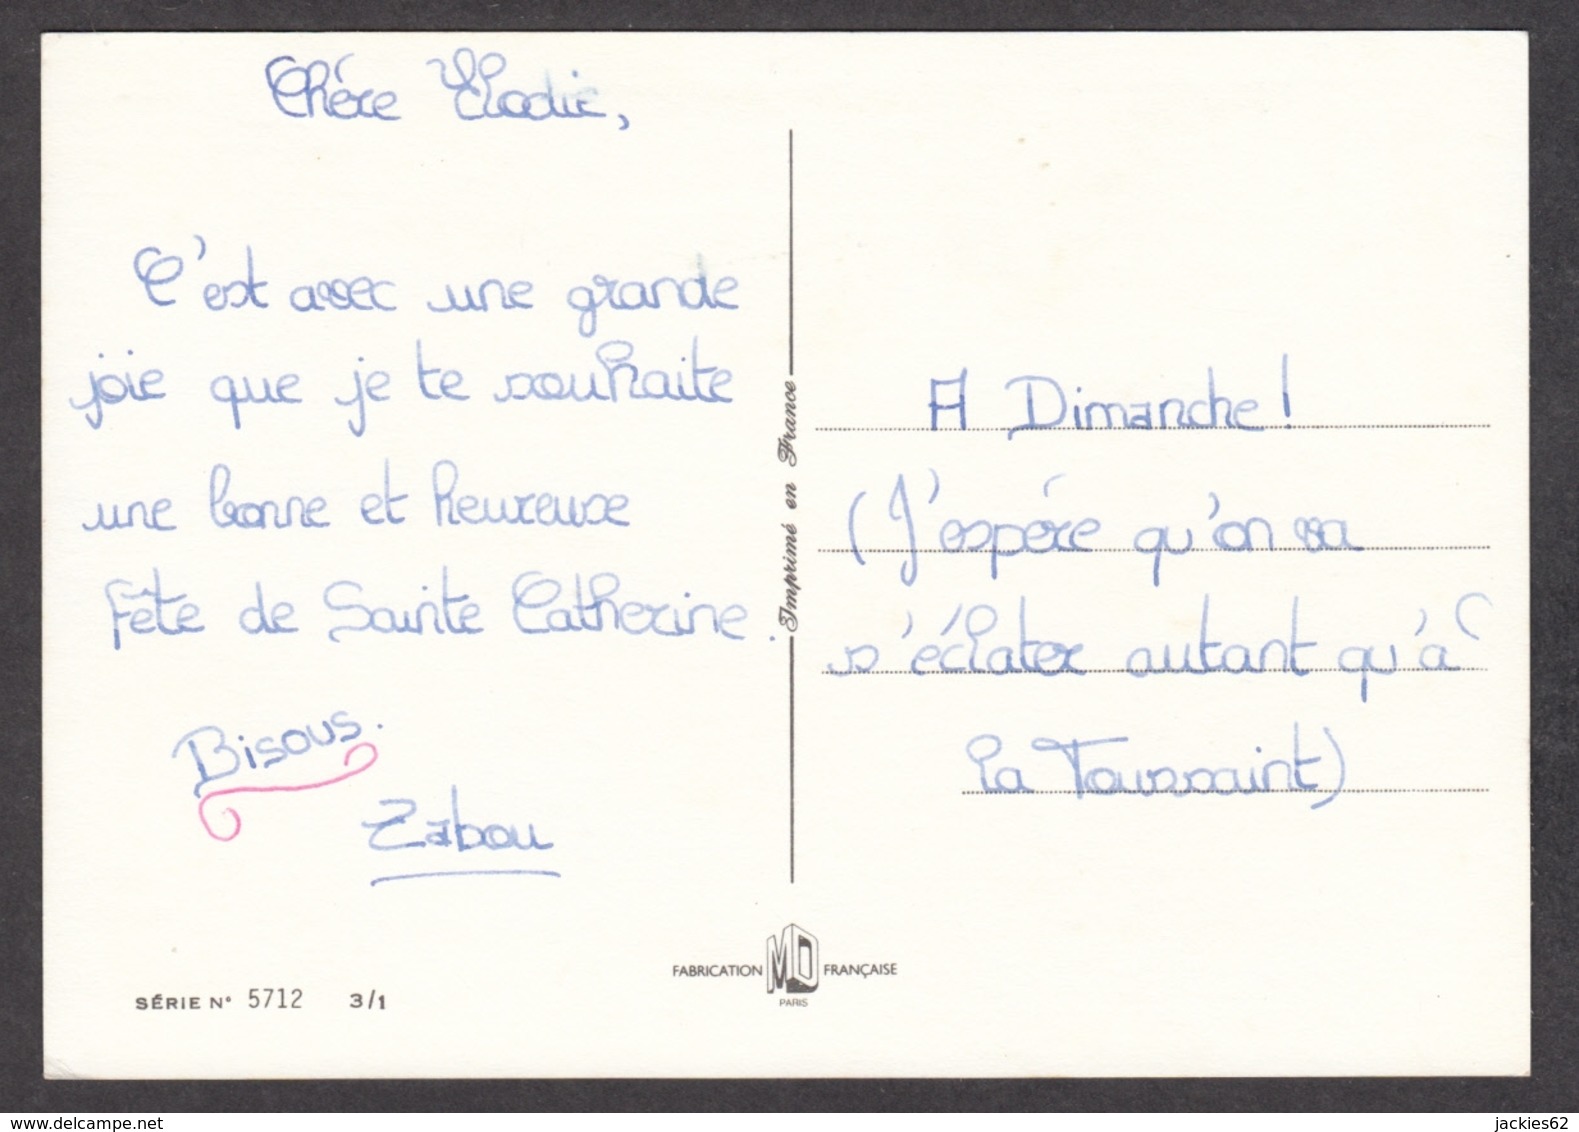 Chére Elodie,
C'est avec une grande
joie que je te souhaite
une bonne et heureuse
fête de Sainte Catherine.
Bisous.
Zabou
A Dimanche!
(J'espére qu'on va
s'éclater autant qu'à
la Toussaint)
Imprimé en France
FABRICATION MD FRANÇAISE
PARIS
SÉRIE N° 5712 3/1
www.delcampe.net
jackies62